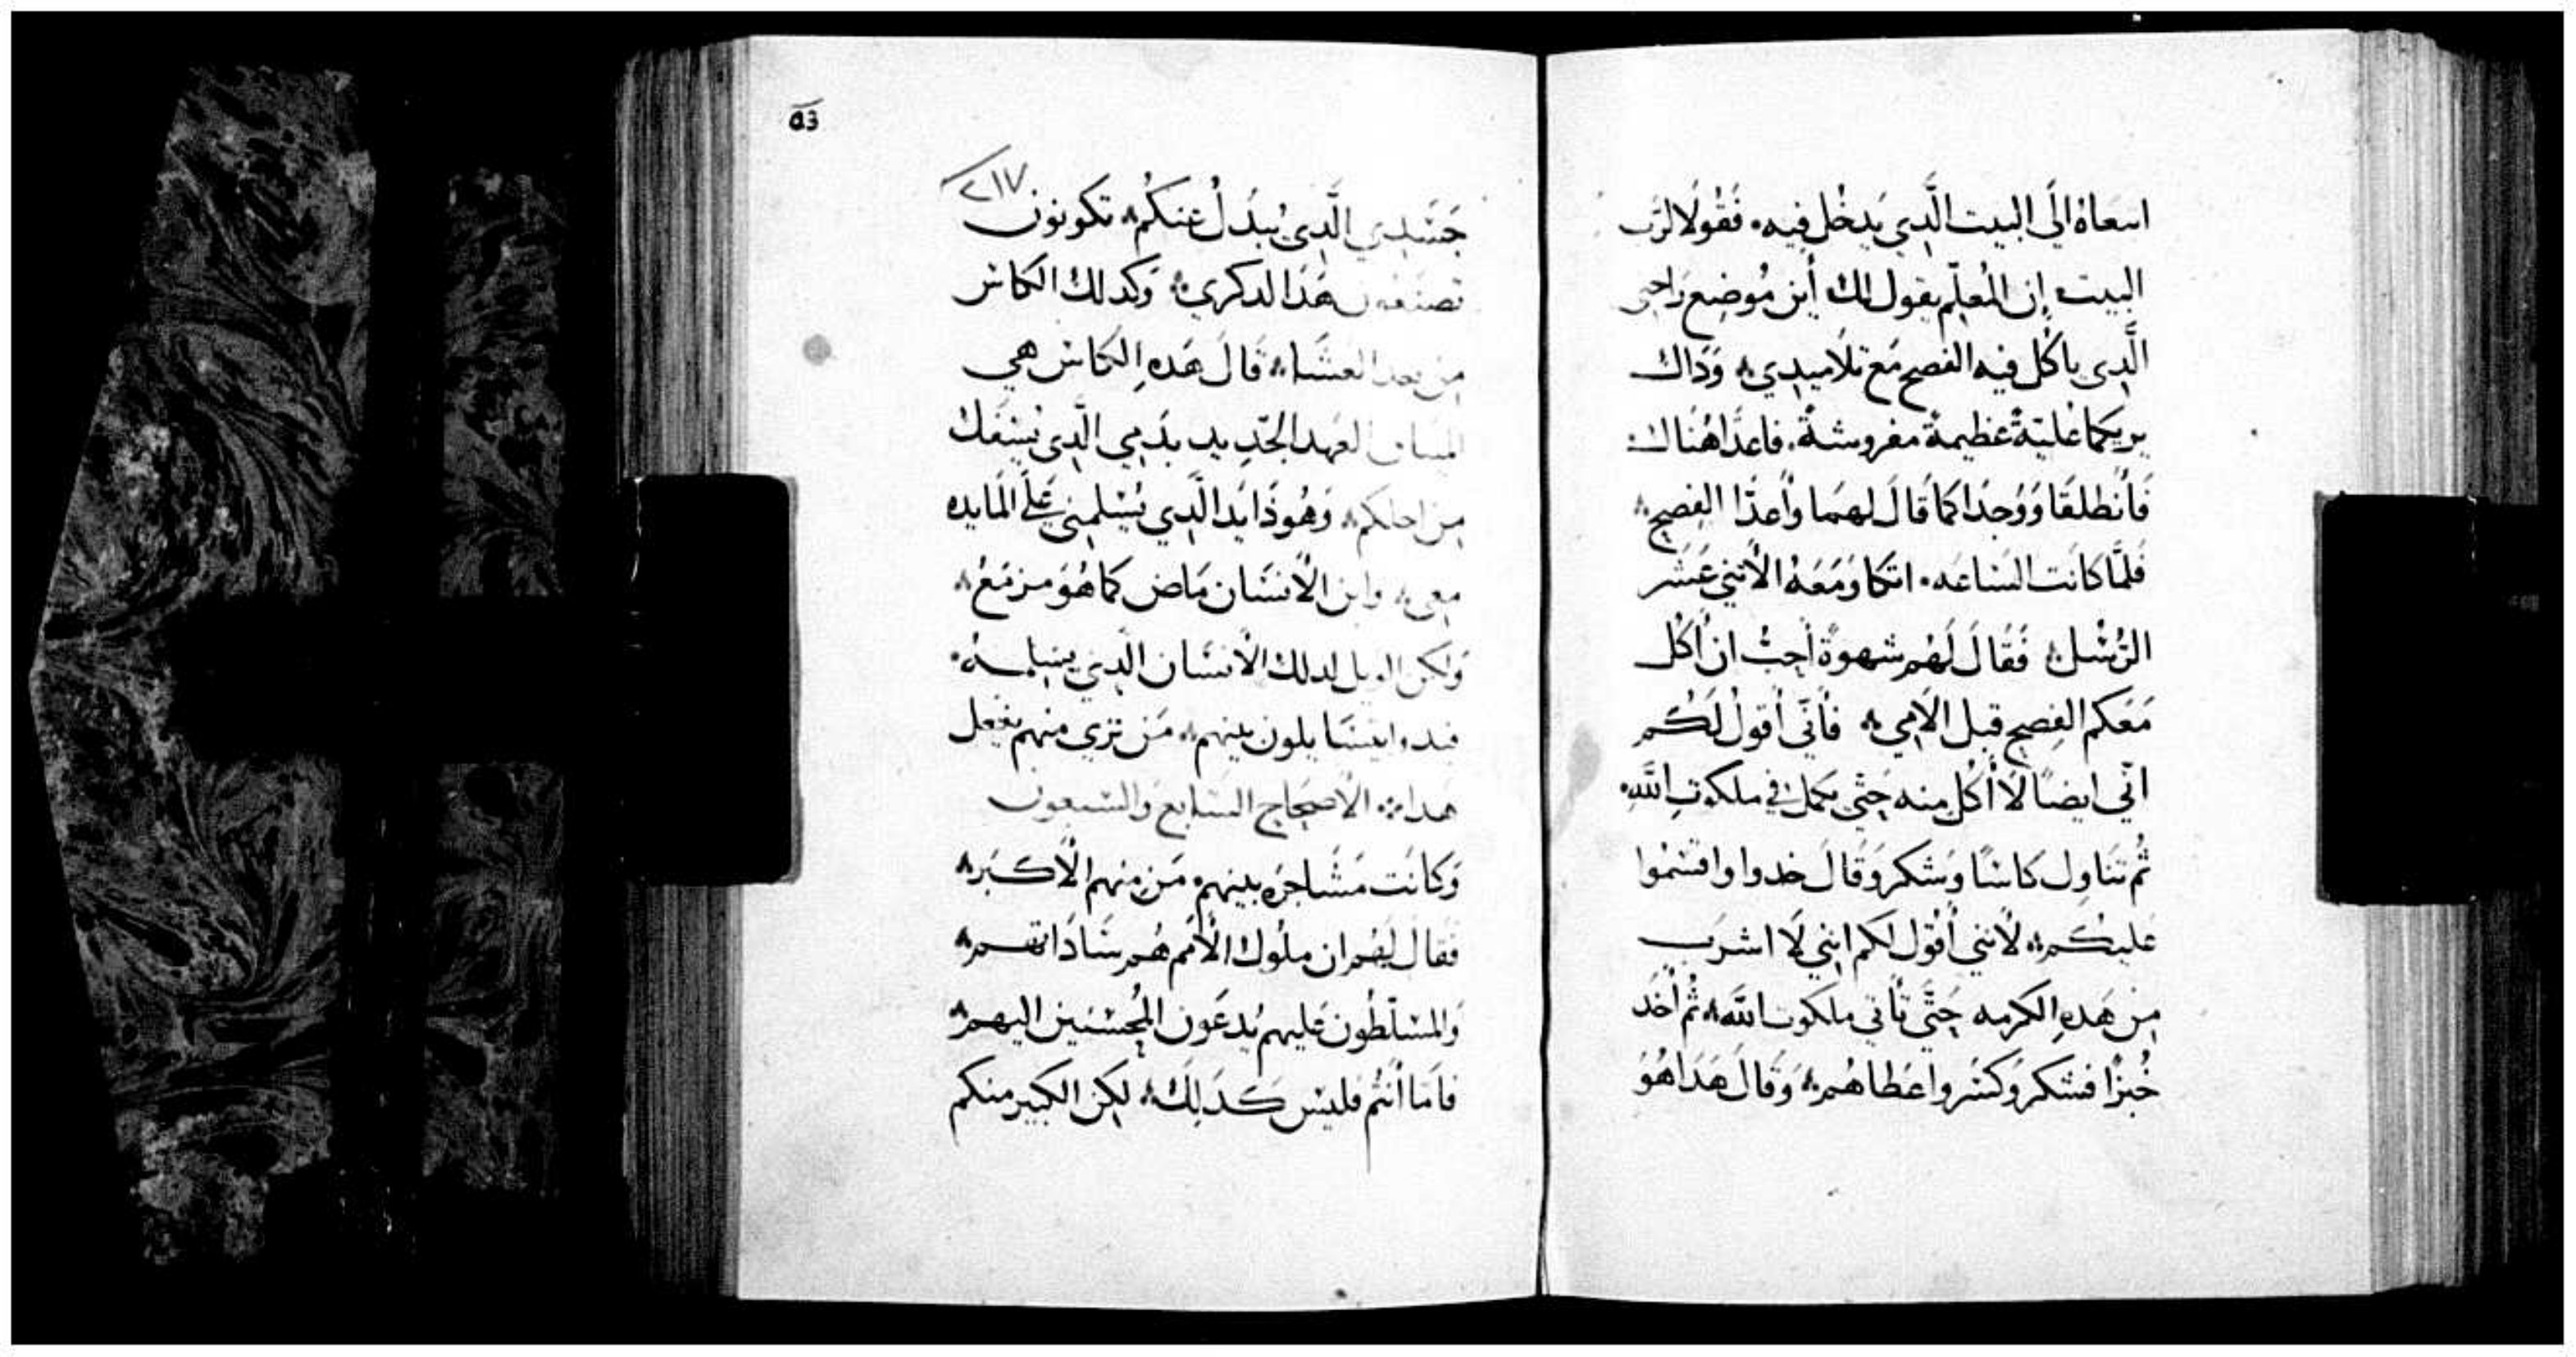 اسعاهُ الَى البيت الَّدِي يَدخُل فيه، فَقُولَا لرَب
البيت إن المُعلّم يقول لك أين مُوضِع رَاحتي
الَّدِى ياكُل فيه الفصح مَع تلاميدي، وَدَاك
يريكما عُليّةً عَظيمةً مفروشةً. فاعدَّا هُنَاك
فَأنطلقَا وَوَجدَا كمَا قَالَ لهمَا وأعدّا الفِصح
فَلمَّا كانَت السَاعَه. اتكا وَمَعَهُ الأثني عَشر
الرُسُل فَقَالَ لَهُم شهوةً أحِبُّ ان أكُل
مَعَكم الفِصح قبل الاَمِي فأنّي أقولُ لَكُم
انّي ايضًا لَا أُكل منه حَتّي يكمل في ملكوتِ اللَّهِ
ثُم تنَاوِل كاسًا وَشكر وَقَالَ خدوا واقسمُوا
عَليكُم لأنني أقُول لكم انِني لَا اشرَب
مِن هَدهِ الكرمه حَتَّي تأتي ملكوت اللَّه ثُم أخَد
خُبزًا فشكر وَكسَر واَعطاهُم وَقَالَ هَدَا هُوَ
ق̅د̅
٢١٧
جَسَدِي الَّدِي يُبدَلُ عَنكُم تكونون
تصنعون هَدَا لدكري وَكدلك الكاس
مِن بعد العشَاء قَالَ هَدهِ الكاس هي
الميتاق العَهد الجَدِيد بدَمِي الَّدِي يُسفَك
مِن اجلكم، وَهُوذَا يَد الَّدِي يُسْلمني عَلَى المَايده
معي وابن الأنسَان مَاض كمَا هُوَ مزمَعُ
وَلكن الويل لدلك الأنسَان الَّدِي
فبدوا يتسَايلون بينهم مَن تري منهم يفعل
هَدا الأصحَاح السَابع وَالسَبعون
وَكانَت مَشَاجرَه بينهم مَن منهم الأكبَر
فَقالَ لَهُم ان ملُوك الأمَم هُم سَادَاتهم
وَالمسَلّطُون عَليهم يُدعَون المُحسنين اليهم
فأمَا أنتُم فليسَ كَدَلِكَ لكن الكبير منكم